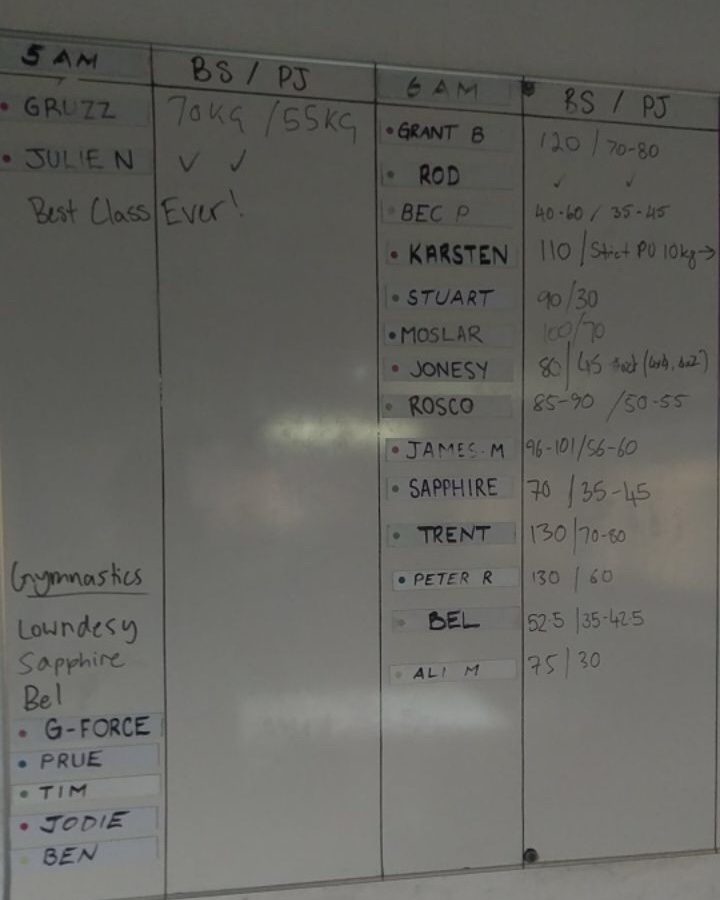 5 AM BS / PJ
GRUZZ 70KG / 55KG
JULIE N ✓ ✓
Best Class Ever!
Gymnastics
Lowndesy
Sapphire
Bel
G-FORCE
PRUE
TIM
JODIE
BEN
6 AM BS / PJ
GRANT B 120 / 70-80
ROD ✓ ✓
BEC P 40-60 / 35-45
KARSTEN 110 / Strict PU 10kg→
STUART 90/30
MOSLAR 100/70
JONESY 80 / 45
ROSCO 85-90 / 50-55
JAMES.M 96-101/56-60
SAPPHIRE 70 / 35-45
TRENT 130/70-80
PETER R 130 / 60
BEL 52.5 / 35-42.5
ALI M 75/30